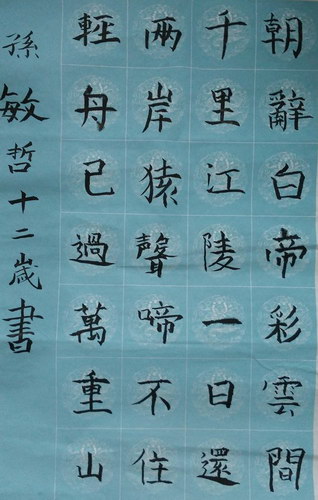 朝辭白帝彩雲間
千里江陵一日還
兩岸猿聲啼不住
輕舟已過萬重山
孫敏哲十二歲書